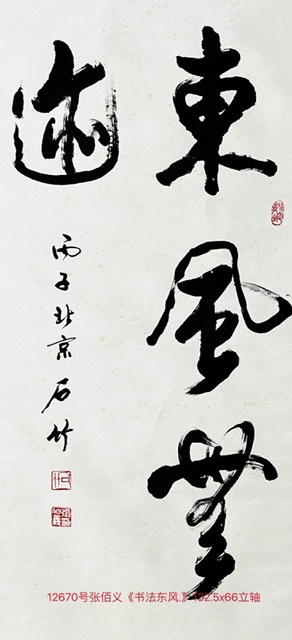 東風無
迹
丙子北京石竹
12670号张佰义《书法东风.》132.5x66立轴